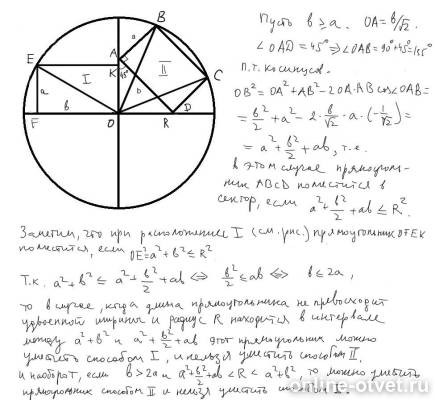 Пусть b ≥ a. OA = b/√2.
∠OAD = 45° ⇒ ∠OAB = 90°+45° = 135°
П.т. косинусов.
OB² = OA² + AB² - 2·OA·AB cos∠OAB =
= b²/2 + a² - 2·b/√2·a·(-1/√2) =
= a² + b²/2 + ab, т.е.
в этом случае прямоуголь-
ник ABCD поместится в
сектор, если a² + b²/2 + ab ≤ R².
B
A
a
E
I
K
45°
II
C
a
b
b
F
O
R
D
Заметим, что при расположение I (см. рис.) прямоугольник OFEK
поместится, если OE² = a² + b² ≤ R²
Т.к. a² + b² ≤ a² + b²/2 + ab ⇔ b²/2 ≤ ab ⇔ b ≤ 2a,
то в случае, когда длина прямоугольника не превосходит
удвоенной ширины и радиус R находится в интервале
между a² + b² и a² + b²/2 + ab этот прямоугольник можно
уместить способом I, и нельзя уместить способом II.
и наоборот, если b > 2a и a² + b²/2 + ab < R < a² + b², то можно уместить
прямоугольник способом II и нельзя уместить способом I.
online-otvet.ru